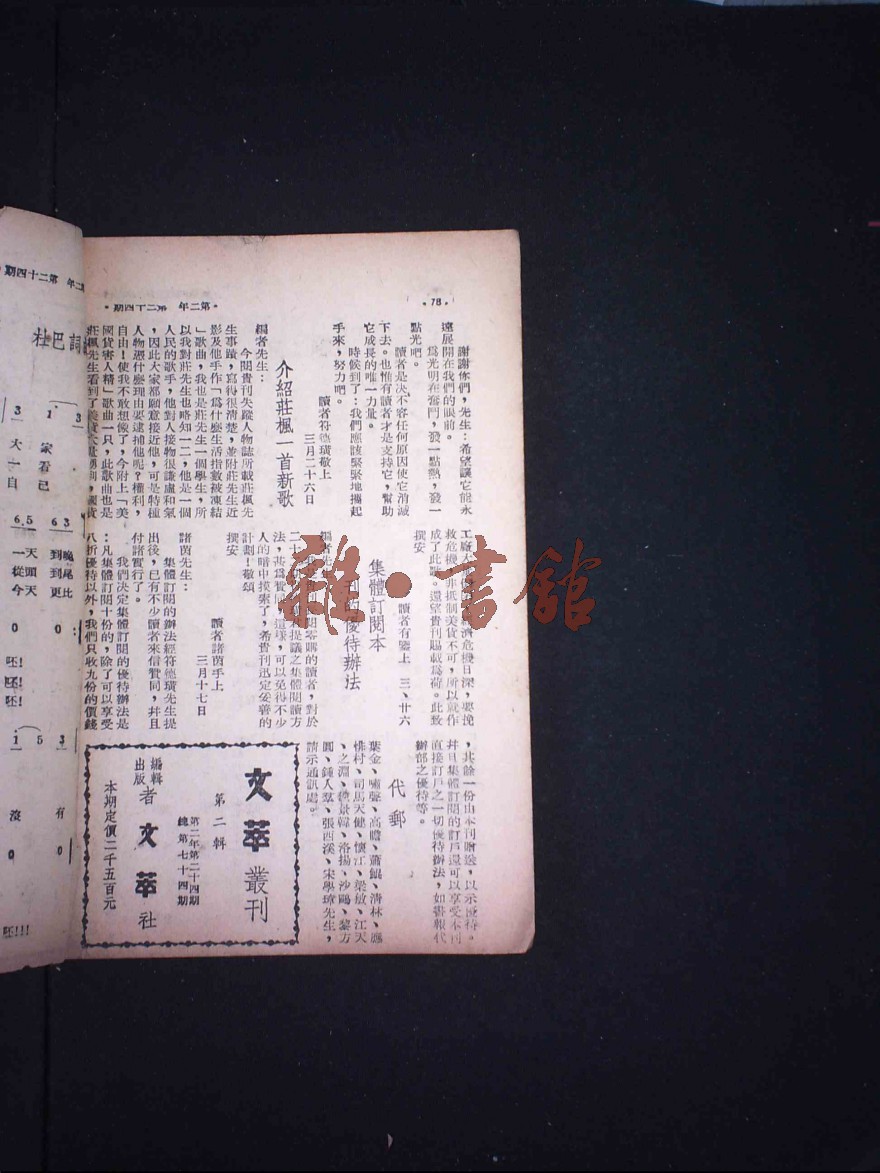 ·78·
·第二年 第二十四期·
謝謝你們，先生：希望讓它能永
遠展開在我們的眼前。
爲光明在奮鬥，發一點熱，發一
點光吧。
讀者是決不容任何原因使它消滅
下去。也惟有讀者才是支持它，幫助
它成長的唯一力量。
時候到了：我們應該緊緊地攜起
手來，努力吧。
讀者符德璜敬上
三月二十六日
介紹莊楓一首新歌
編者先生：
今閱貴刊失蹤人物誌所載莊楓先
生事蹟，寫得很清楚，並附莊先生近
影及他手作「爲什麼生活指數被凍結
」歌曲，我也是莊先生一個學生，所
以我對莊先生也略知一二，他是一個
人民的歌手，他對人接物很謙虛和氣
，因此大家都願意接近他，可是特種
人物憑什麼理由要逮捕他呢？權利，
自由！使我不敢想像了，今附上「美
國貨害人精」歌曲一只，此歌曲也是
莊楓先生看到了美貨
工廠
救危機，非抵制美貨不可，所以就作
成了此歌。還望貴刊賜載爲荷。此致
撰安
讀者有鑒上 三、廿六
集體訂閱本
優待辦法
編者先
閱零購的讀者，對於
二十
提議之集體閱讀方
法，甚爲贊
這樣，可以免得不少
人的暗中摸索了，希貴刊迅定妥善的
計劃！敬頌
撰安
讀者諸茵手上
三月十七日
諸茵先生：
集體訂閱的辦法經符德璜先生提
出後，已有不少讀者來信贊同，幷且
付諸實行了。
我們決定集體訂閱的優待辦法是
：凡集體訂閱十份的，除了可以享受
八折優待以外，我們只收九份的價錢
，其餘一份由本刊贈送，以示優待。
幷且集體訂閱的訂戶還可以享受本刊
直接訂戶之一切優待辦法，如書報代
辦部之優待等。
代郵
葉金、嘯聲、高瞻、蕭鯤、清林、應
惟村、司馬天健、懷江、梁敏、江天
、之淵、魏景韓、洛揚、沙鷗、黎方
圓、鍾人羣、張西溪、宋學琦先生，
請示通訊處。
文萃叢刊
第二輯
第二年第二十四期
總第七十四期
編輯
出版
者 文萃社
本期定價二千五百元
雜·書館
杜巴詞